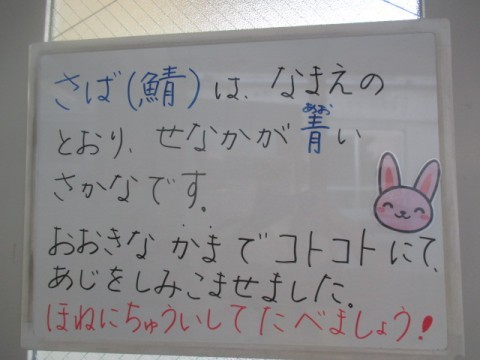 さば(鯖)は、なまえの
とおり、せなかが青い
あお
さかなです。
おおきなかまでコトコトにて、
あじをしみこませました。
ほねにちゅういしてたべましょう!